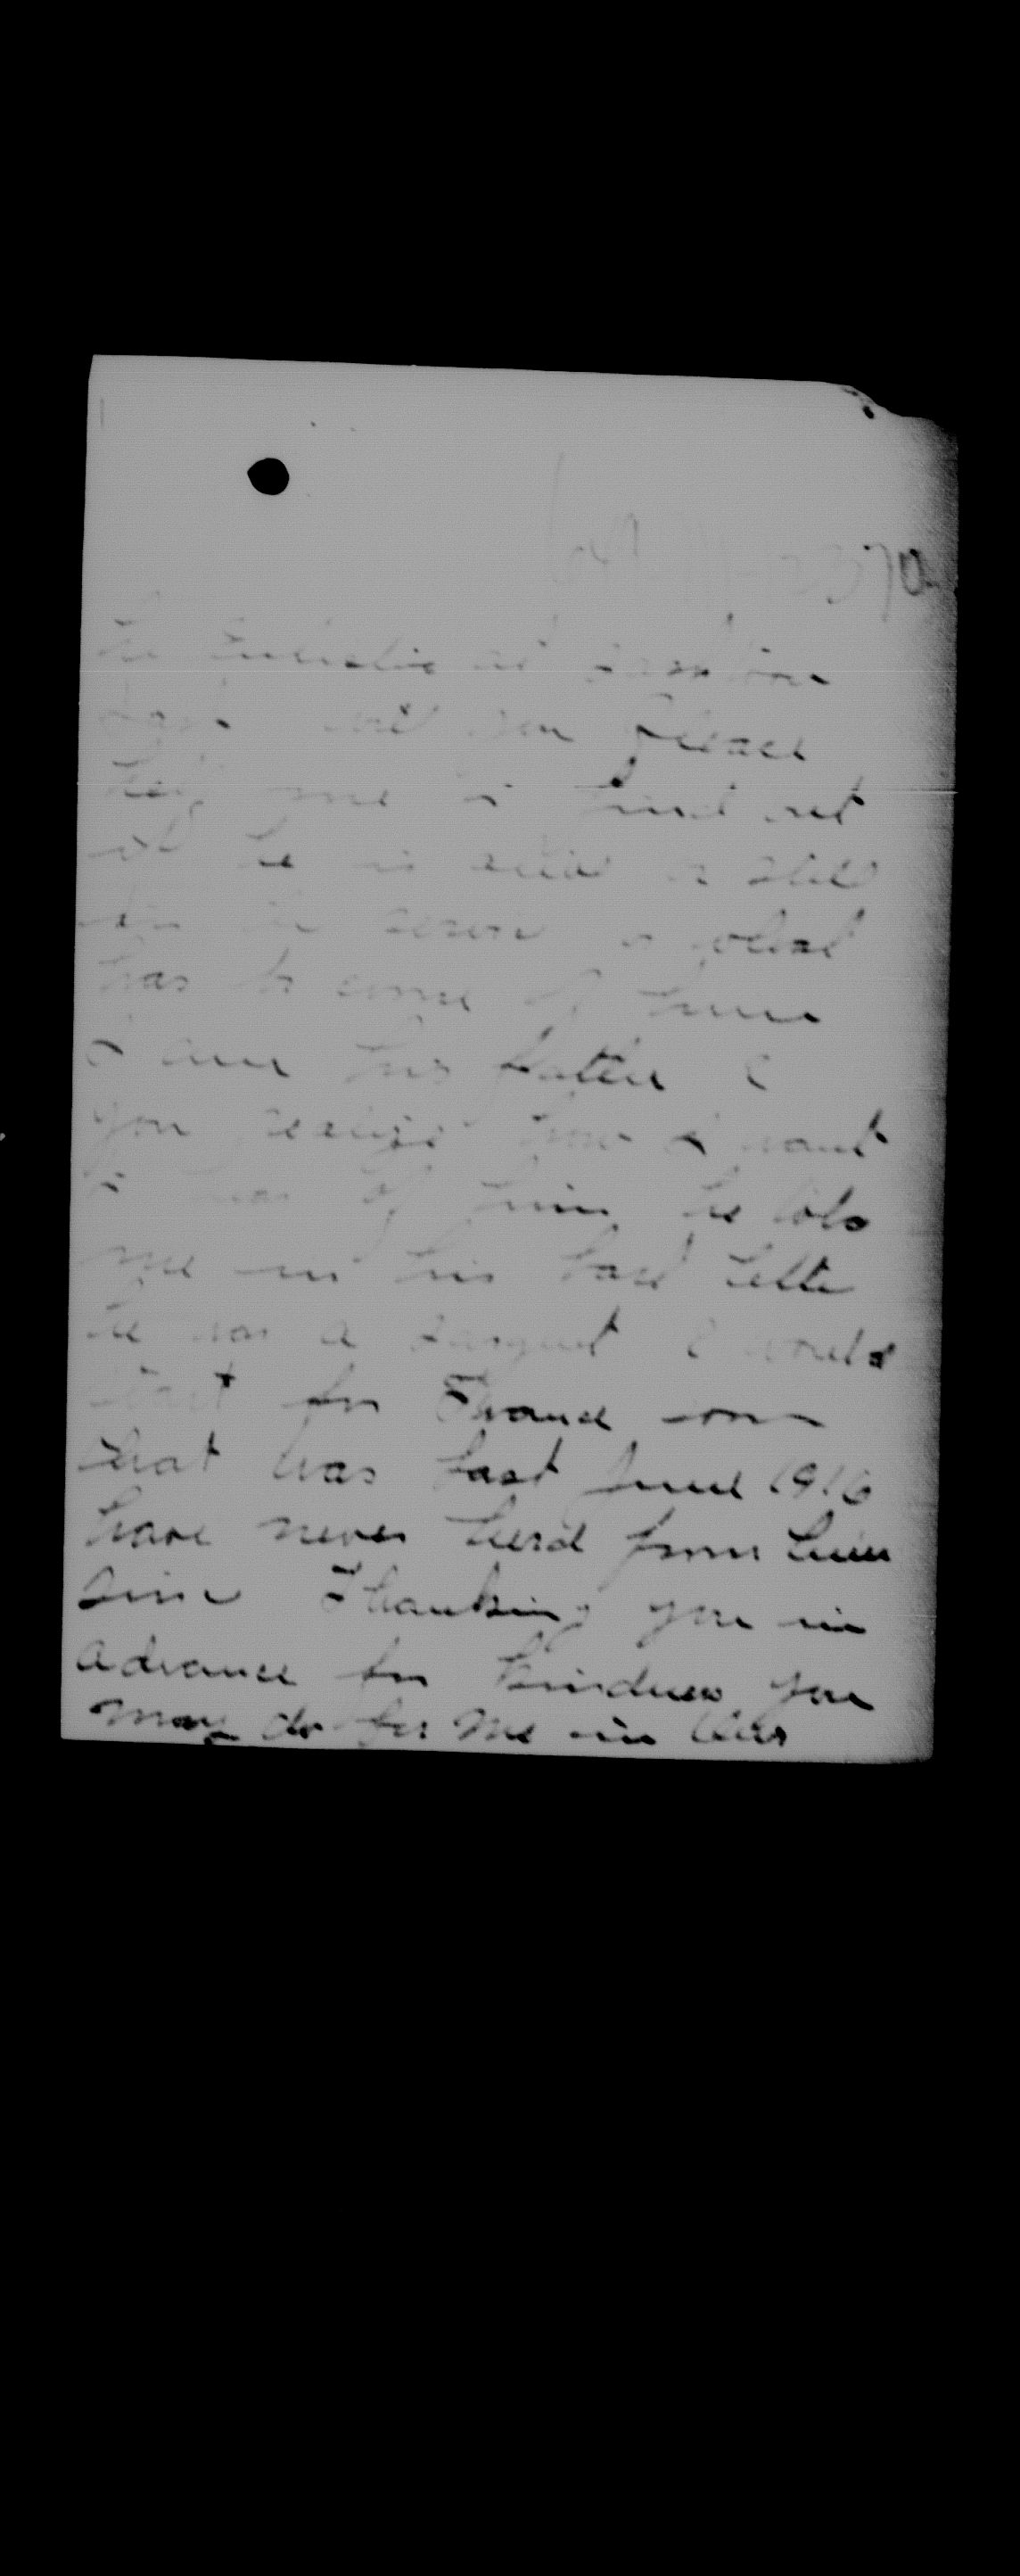 he
will you please
help me to find out
if he is alive or still
in the or what
has be come of him
I am his father &
you realize how I want
to of him he told
me in his last letter
he was a & would
start for France soon
that was last June 1916
have never herd from him
since Thanking you in
advance for kindness you
may do for me in this